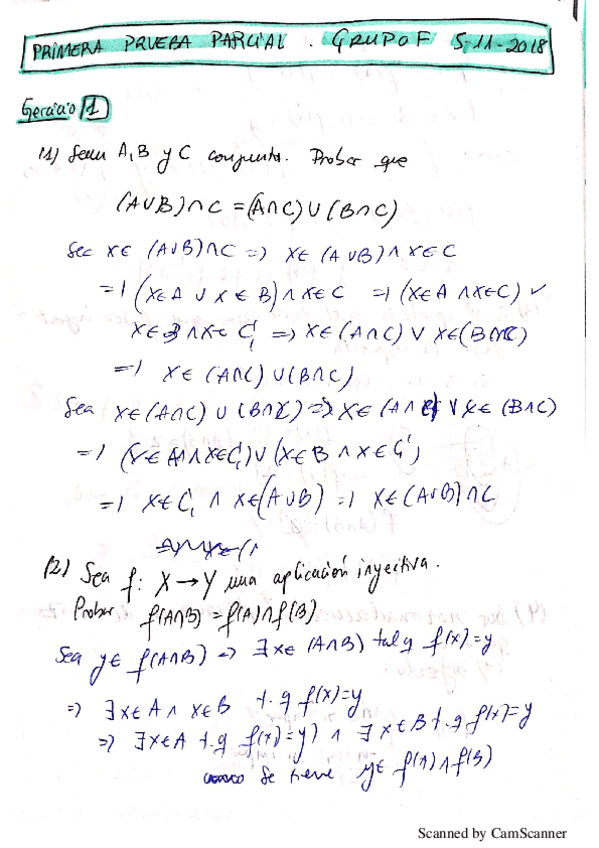 PRIMERA PRUEBA PARCIAL. GRUPO F 5-11-2018
Ejercicio 1
(1) Sean A, B y C conjuntos. Probar que
(A∪B)∩C = (A∩C)∪(B∩C)
Sea x∈ (A∪B)∩C => x∈ (A∪B) ∧ x∈C
=> (x∈A ∪ x∈B) ∧ x∈C => (x∈A ∧ x∈C) ∨
x∈B ∧ x∈C => x∈(A∩C) ∨ x∈(B∩C)
=> x∈ (A∩C)∪(B∩C)
Sea x∈(A∩C) ∪ (B∩C) => x∈(A∩C) ∨ x∈(B∩C)
=> (x∈A ∧ x∈C) ∨ (x∈B ∧ x∈C)
=> x∈C ∧ x∈(A∪B) => x∈(A∪B)∩C
(2) Sea f: X → Y una aplicación inyectiva.
Probar f(A∩B) = f(A)∩f(B)
Sea y∈ f(A∩B) => ∃x∈ (A∩B) tal q f(x)=y
=> ∃x∈A ∧ x∈B t.q f(x)=y
=> ∃x∈A t.q f(x)=y) ∧ ∃x∈B t.q f(x)=y
se tiene y∈ f(A)∧f(B)
Scanned by CamScanner